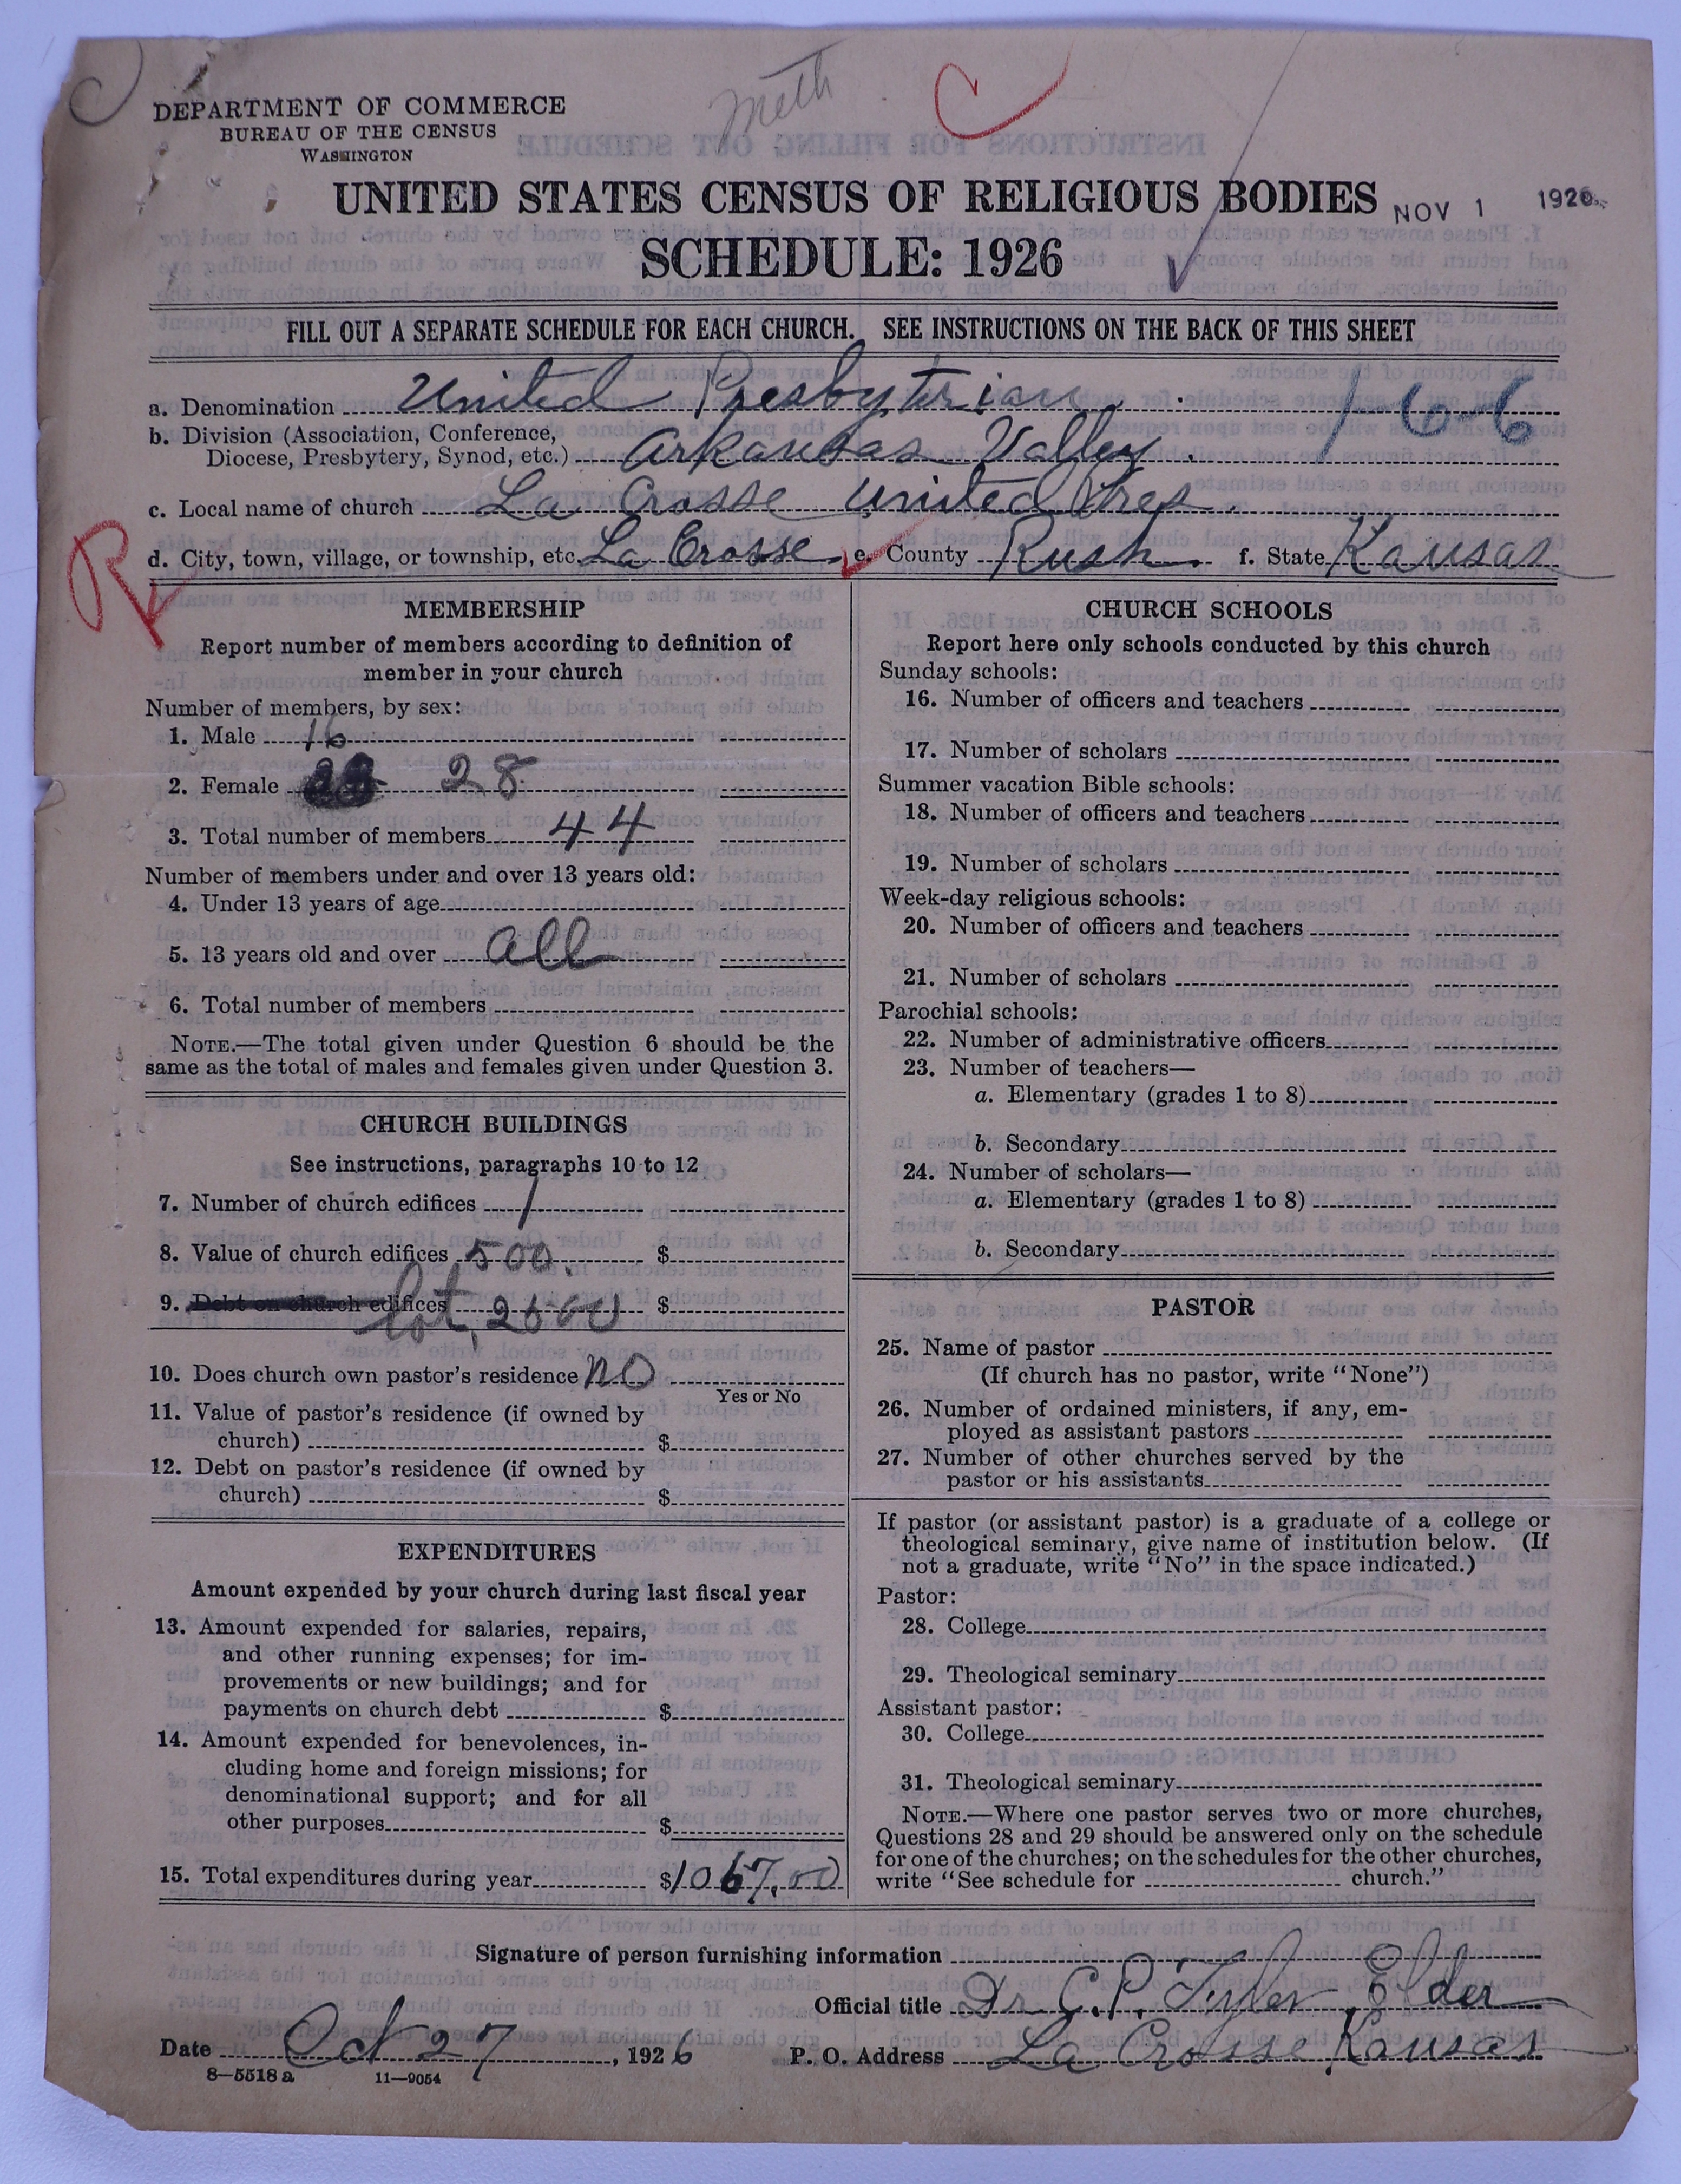 meth
DEPARTMENT OF COMMERCE
BUREAU OF THE CENSUS
WASHINGTON
UNITED STATES CENSUS OF RELIGIOUS BODIES NOV 1 1926
SCHEDULE: 1926
FILL OUT A SEPARATE SCHEDULE FOR EACH CHURCH. SEE INSTRUCTIONS ON THE BACK OF THIS SHEET
a. Denomination United Presbyterian 1-6-6
b. Division (Association, Conference,
Diocese, Presbytery, Synod, etc.) Arkansas Valley
c. Local name of church La Crosse United Pres.
R
d. City, town, village, or township, etc. La Crosse e. County Rush f. State Kansas
MEMBERSHIP
Report number of members according to definition of
member in your church
Number of members, by sex:
1. Male 16
2. Female 28
3. Total number of members 44
Number of members under and over 13 years old:
4. Under 13 years of age
5. 13 years old and over all
6. Total number of members
NOTE.—The total given under Question 6 should be the
same as the total of males and females given under Question 3.
CHURCH BUILDINGS
See instructions, paragraphs 10 to 12
7. Number of church edifices 1
8. Value of church edifices 500. $
9. Debt on church edifices lot, 2600 $
10. Does church own pastor's residence no
Yes or No
11. Value of pastor's residence (if owned by
church) $
12. Debt on pastor's residence (if owned by
church) $
EXPENDITURES
Amount expended by your church during last fiscal year
13. Amount expended for salaries, repairs,
and other running expenses; for im-
provements or new buildings; and for
payments on church debt $
14. Amount expended for benevolences, in-
cluding home and foreign missions; for
denominational support; and for all
other purposes $
15. Total expenditures during year $1067.00
CHURCH SCHOOLS
Report here only schools conducted by this church
Sunday schools:
16. Number of officers and teachers
17. Number of scholars
Summer vacation Bible schools:
18. Number of officers and teachers
19. Number of scholars
Week-day religious schools:
20. Number of officers and teachers
21. Number of scholars
Parochial schools:
22. Number of administrative officers
23. Number of teachers—
a. Elementary (grades 1 to 8)
b. Secondary
24. Number of scholars—
a. Elementary (grades 1 to 8)
b. Secondary
PASTOR
25. Name of pastor
(If church has no pastor, write "None")
26. Number of ordained ministers, if any, em-
ployed as assistant pastors
27. Number of other churches served by the
pastor or his assistants
If pastor (or assistant pastor) is a graduate of a college or
theological seminary, give name of institution below. (If
not a graduate, write "No" in the space indicated.)
Pastor:
28. College
29. Theological seminary
Assistant pastor:
30. College
31. Theological seminary
NOTE.—Where one pastor serves two or more churches,
Questions 28 and 29 should be answered only on the schedule
for one of the churches; on the schedules for the other churches,
write "See schedule for church."
Signature of person furnishing information
Official title Dr C.P. Tyler Elder
Date Oct 27, 1926 P. O. Address La Crosse Kansas
8—5518 a 11—9054